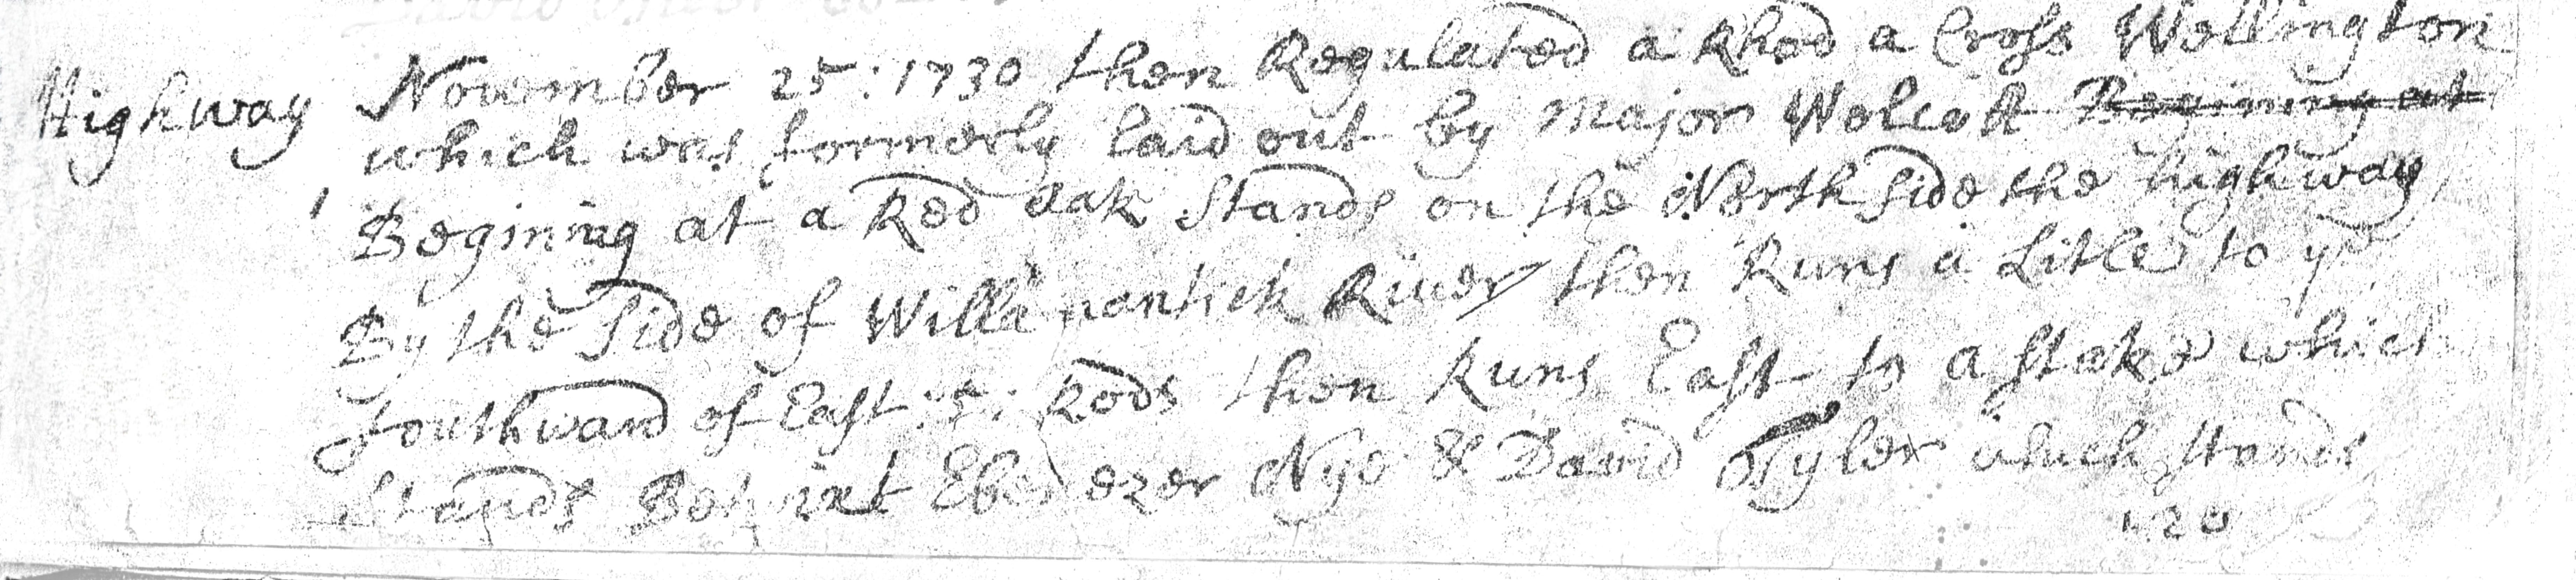 Highway November 25: 1730 then Regulated a Rhod a Cross Wellington
which was formerly laid out by Major Wolcott Begining at
Begining at a Red oak Stands on the North Side the highway
By the Side of Willimantick River then Runs a Litle to ye
Southward of East :5: Rods then Runs East to a Stake which
Stands Betwixt Ebenezer Nye & David Tyler which Stands
120